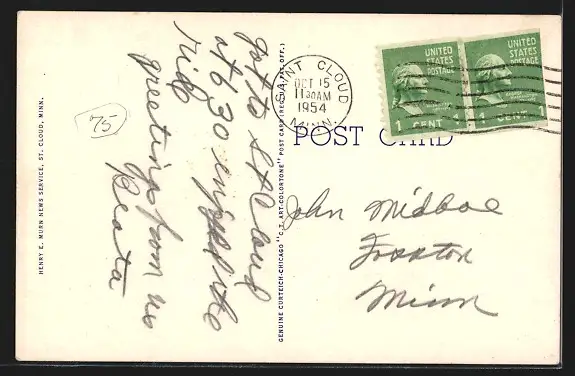 SAINT CLOUD
OCT 15
11 30 AM
1954
MINN.
UNITED
STATES
POSTAGE
1 CENT
UNITED
STATES
POSTAGE
1 CENT 1
POST CARD
got to St Cloud
at 6 30 enjoyed the
ride
greetings from us
Beata
75
John Midboe
Froston
Minn
HENRY E. MURN NEWS SERVICE, ST. CLOUD, MINN.
GENUINE CURTEICH-CHICAGO "C.T. ART-COLORTONE" POST CARD (REG. U.S. PAT. OFF.)